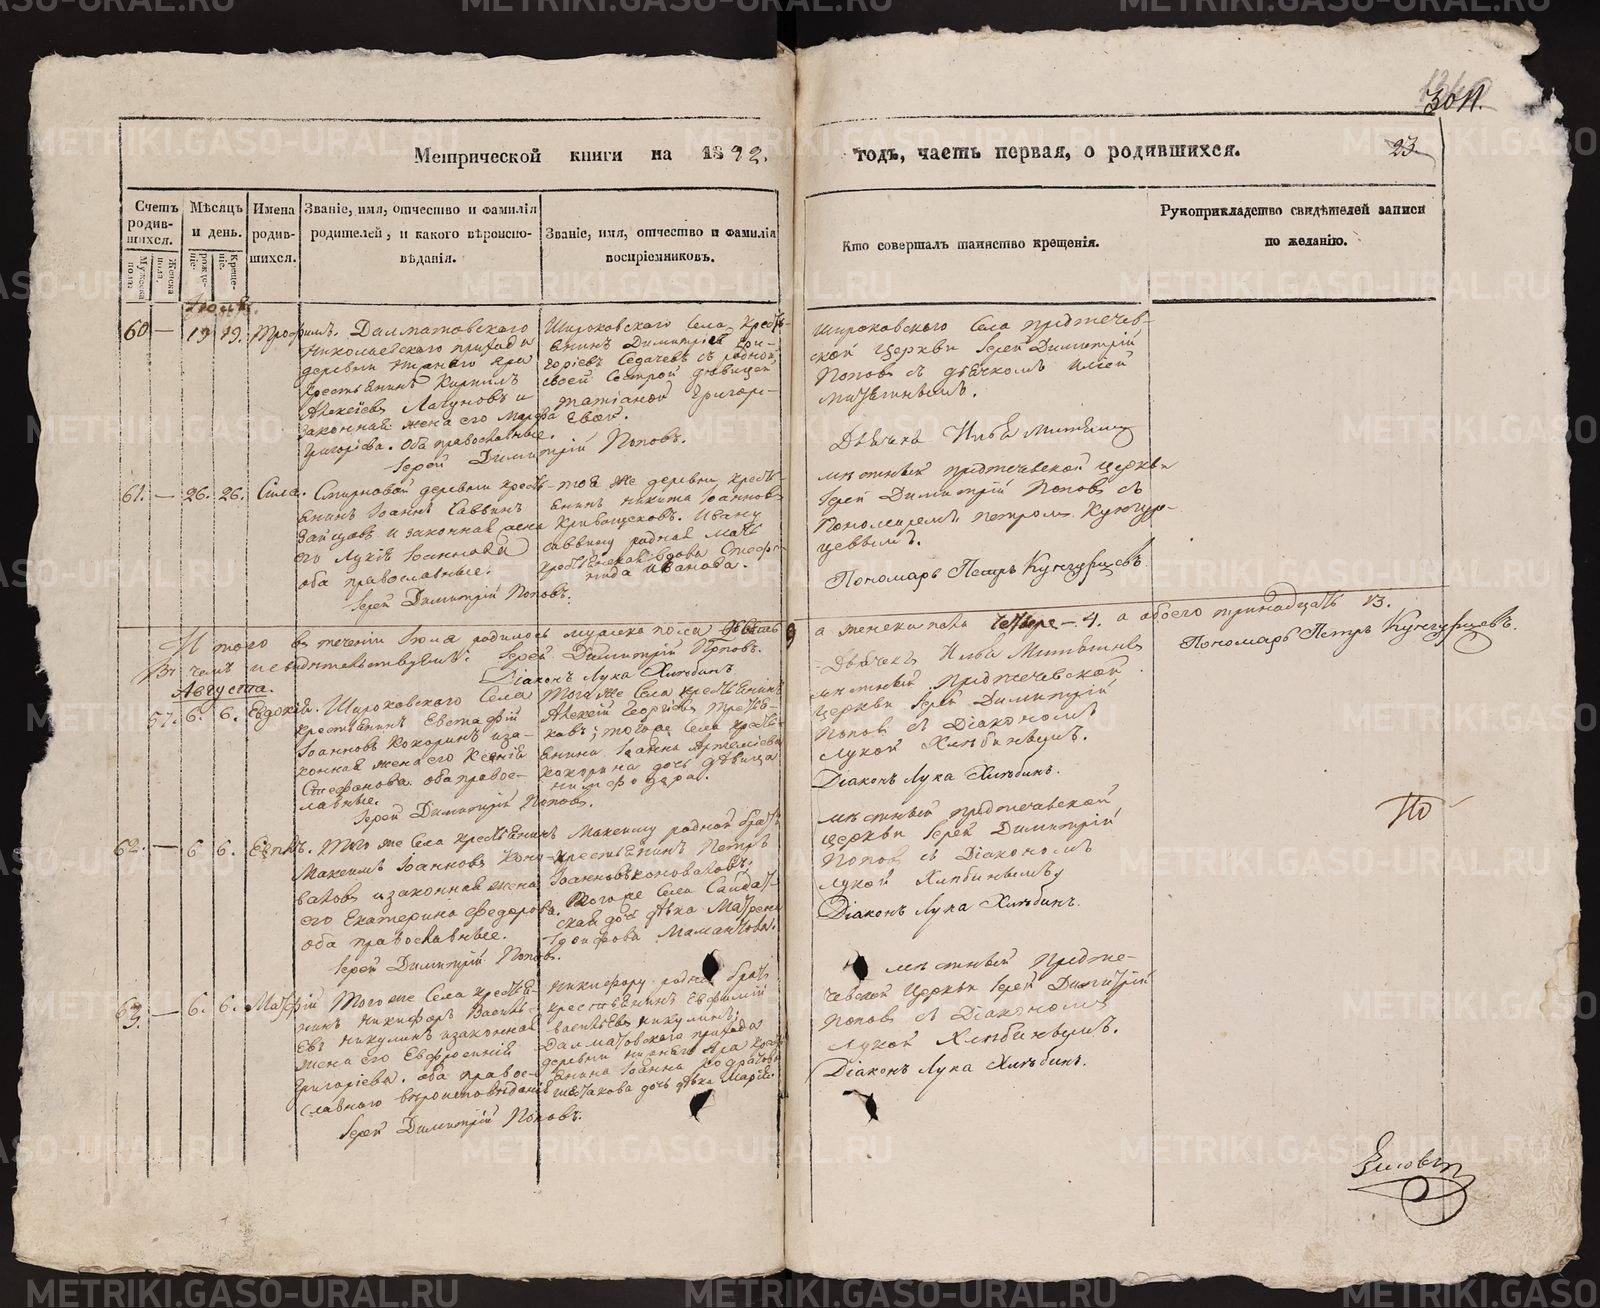 304.
Метрической книги на 1842.
годъ, часть первая, о родившихся.
23.
Счетъ родив-шихся.
Мужеска пола.
Женска пола.
Мѣсяцъ и день.
рожде-ніе.
Креще-ніе.
Имена родив-шихся.
Званіе, имя, отчество и фамилія родителей, и какого вѣроиспо-вѣданія.
Званіе, имя, отчество и фамилія воспріемниковъ.
Кто совершалъ таинство крещенія.
Рукоприкладство свидѣтелей записи по желанію.
Іюля.
60 — 19 19. Трофимъ.
Далматовскаго
Николаевскаго прихода
деревни
крестьянинъ Кирилъ
Алексѣевъ Лагуновъ и
законная жена его Марфа
Григорьева. Оба православные.
Іерей Димитрій Поповъ.
Широковскаго Села Кресть-
янинъ Димитрій Гри-
горіевъ Седачевъ съ родной
своей Сестрой дѣвицей
Татіаной Григорі-
евой.
Широковскаго Села предтечев-
ской Церкви Іерей Димитрій
Поповъ съ дьячкомъ Ильей
Митюшинымъ.
Дьячекъ Илья Митюшинъ
61. — 26. 26. Сила.
Смирновой деревни кресть-
янинъ Іоаннъ Саввинъ
Зайцовъ и законная жена
его Лукія Іоаннова
оба православные.
Іерей Димитрій Поповъ.
той же деревни кресть-
янинъ Никита Іоанновъ
Кривощековъ. Ивану
Саввину родная мать
крестьянская вдова Стефа-
нида Иванова.
мѣстный предтечевской церкви
Іерей Димитрій Поповъ съ
Пономаремъ Петромъ Кунгур-
цевымъ.
Пономарь Петръ Кунгурцевъ.
Итого въ теченіи Іюля родилось мужска пола девять 9 а женска пола четыре — 4. а обоего тринадцать 13.
Въ чемъ и свидѣтельствуемъ: Іерей Димитрій Поповъ.
Діаконъ Лука Хлѣбинъ
Дьячекъ Илья Митюшинъ
Пономарь Петръ Кунгурцевъ.
Августа.
57. 6. 6. Евдокій.
Широковскаго Села
крестьянинъ Евстафій
Іоанновъ Кокоринъ и за-
конная жена его Ксенія
Стефанова. оба правос-
лавные.
Іерей Димитрій Поповъ.
Того же Села крестьянинъ
Алексѣй Георгіевъ Третья-
ковъ; того же Села кресть-
янина Іоанна Артеміева
Кокорина дочь дѣвица
Нимфодора.
мѣстный предтечевской
церкви Іерей Димитрій
Поповъ съ Діакономъ
Лукой Хлѣбинымъ.
Діаконъ Лука Хлѣбинъ.
62. — 6 6.
Того же Села крестьянинъ
Максимъ Іоанновъ Коно-
валовъ и законная жена
его Екатерина Федорова.
оба православные.
Іерей Димитрій Поповъ.
Максиму родной братъ
крестьянинъ Петръ
Іоанновъ Коноваловъ;
того же Села Салдат-
ская дочь дѣвка Матрена
Трифонова Мамантова.
мѣстный предтечевской
церкви Іерей Димитрій
Поповъ съ Діакономъ
Лукой Хлѣбинымъ
Діаконъ Лука Хлѣбинъ.
63. — 6. 6. Матфій
Того же Села крестья-
нинъ Никифоръ Василь-
евъ Никулинъ и законная
жена его Евфросинія
Григоріева. оба правос-
лавнаго вѣроисповѣданія
Іерей Димитрій Поповъ.
Никифору родной братъ
крестьянинъ Евфимій
Васильевъ Никулинъ;
Далматовскаго прихода
деревни нижняго Яра кресть-
янина Іоанна Кодратова
Шестакова дочь дѣвка Марія
мѣстный Предте-
чевской Церкви Іерей Димитрій
Поповъ съ Діакономъ
Лукой Хлѣбинымъ.
Діаконъ Лука Хлѣбинъ.
По
METRIKI.GASO-URAL.RU